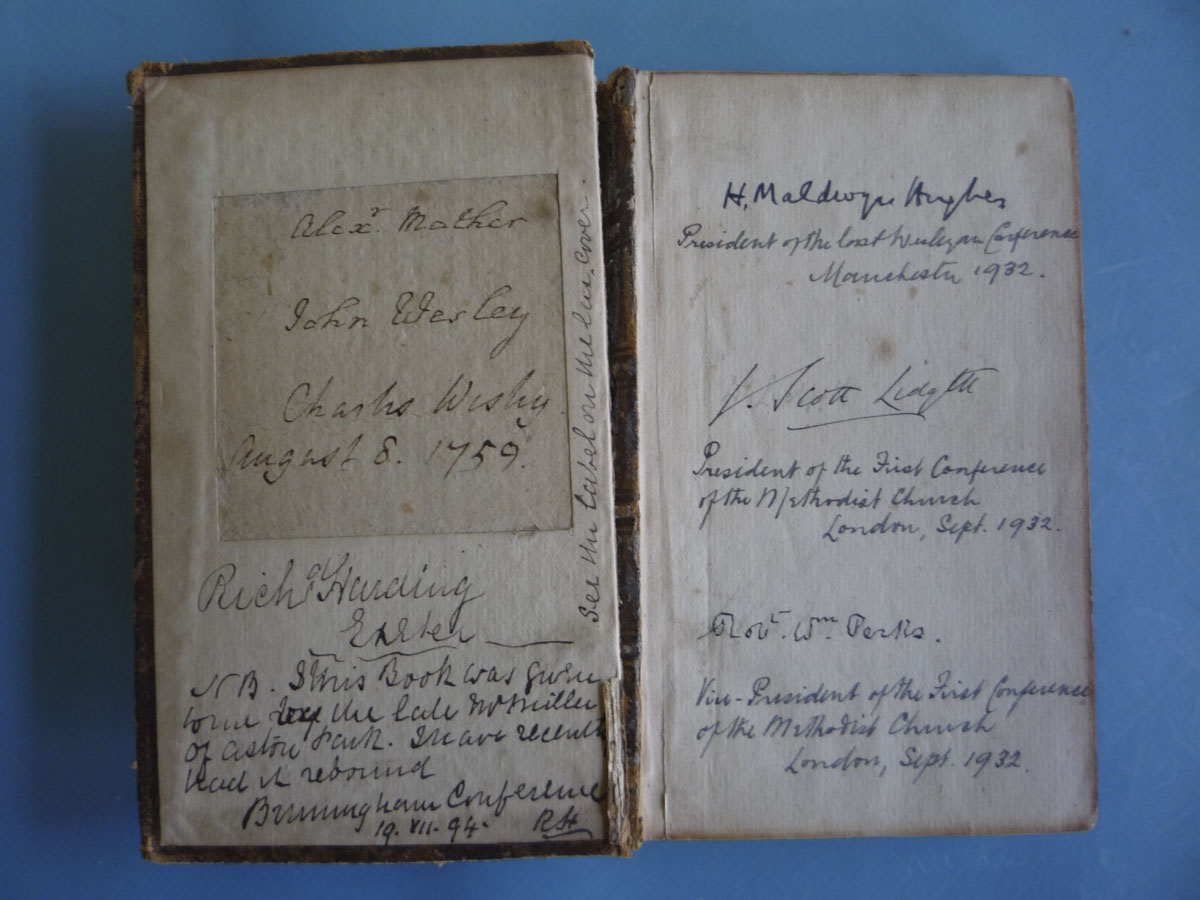 Alexr. Mather
John Wesley
Charles Wesley
August 8. 1759.
See the label on the last cover.
Richd Harding
Exeter
N B. This Book was given
to me by the late Mr Miller
of Aston Park. I have recently
had it rebound
Birmingham Conference
19. VII. 94. RH
H. Maldwyn Hughes
President of the last Wesleyan Conference
Manchester 1932.
J. Scott Lidgett
President of the First Conference
of the Methodist Church
London, Sept. 1932.
Robt. Wm. Perks.
Vice-President of the First Conference
of the Methodist Church
London, Sept. 1932.